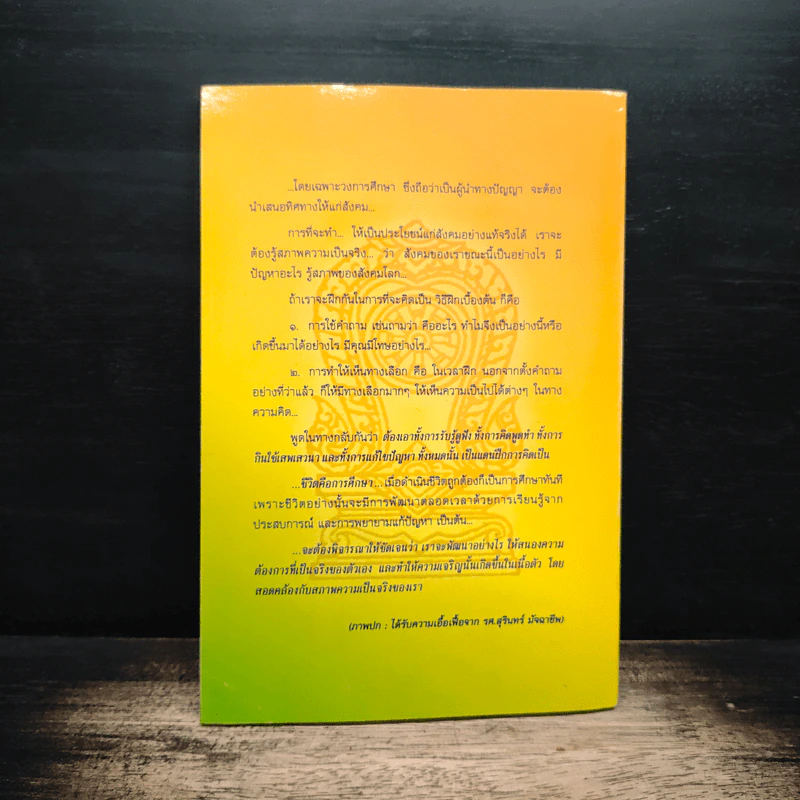 ...โดยเฉพาะวงการศึกษา ซึ่งถือว่าเป็นผู้นำทางปัญญา จะต้อง
นำเสนอทิศทางให้แก่สังคม...
การที่จะทำ... ให้เป็นประโยชน์แก่สังคมอย่างแท้จริงได้ เราจะ
ต้องรู้สภาพความเป็นจริง... ว่า สังคมของเราขณะนี้เป็นอย่างไร มี
ปัญหาอะไร รู้สภาพของสังคมโลก...
ถ้าเราจะฝึกกันในการที่จะคิดเป็น วิธีฝึกเบื้องต้น ก็คือ
๑. การใช้คำถาม เช่นถามว่า คืออะไร ทำไมจึงเป็นอย่างนี้หรือ
เกิดขึ้นมาได้อย่างไร มีคุณมีโทษอย่างไร...
๒. การทำให้เห็นทางเลือก คือ ในเวลาฝึก นอกจากตั้งคำถาม
อย่างที่ว่าแล้ว ก็ให้มีทางเลือกมากๆ ให้เห็นความเป็นไปได้ต่างๆ ในทาง
ความคิด...
พูดในทางกลับกันว่า ต้องเอาทั้งการรับรู้ดูฟัง ทั้งการคิดพูดทำ ทั้งการ
กินใช้เสพเสวนา และทั้งการแก้ไขปัญหา ทั้งหมดนั้น เป็นแดนฝึกการคิดเป็น
...ชีวิตคือการศึกษา...เมื่อดำเนินชีวิตถูกต้องก็เป็นการศึกษาทันที
เพราะชีวิตอย่างนั้นจะมีการพัฒนาตลอดเวลาด้วยการเรียนรู้จาก
ประสบการณ์ และการพยายามแก้ปัญหา เป็นต้น...
...จะต้องพิจารณาให้ชัดเจนว่า เราจะพัฒนาอย่างไร ให้สนองความ
ต้องการที่เป็นจริงของตัวเอง และทำให้ความเจริญนั้นเกิดขึ้นในเนื้อตัว โดย
สอดคล้องกับสภาพความเป็นจริงของเรา
(ภาพปก : ได้รับความเอื้อเฟื้อจาก รศ.สุรินทร์ มัจฉาชีพ)